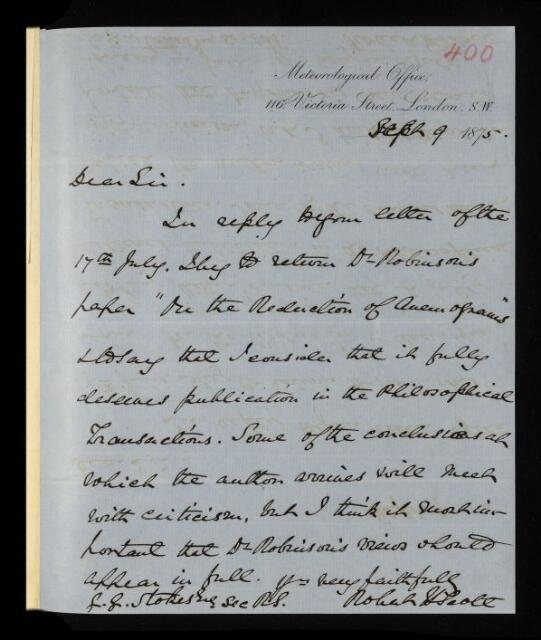 400
Meteorological Office,
116, Victoria Street, London, S.W.
Sept 9 1875.
Dear Sir.
In reply to your letter of the
17th July, I beg to return Dr Robinson's
paper "On the Reduction of Anemograms"
& to say that I consider that it fully
deserves publication in the Philosophical
Transactions. Some of the conclusions at
which the author arrives will meet
with criticism, but I think it most im-
portant that Dr Robinson's views should
appear in full. Yrs very faithfully
G. G. Stokes Esq Sec R.S. Robert H Scott